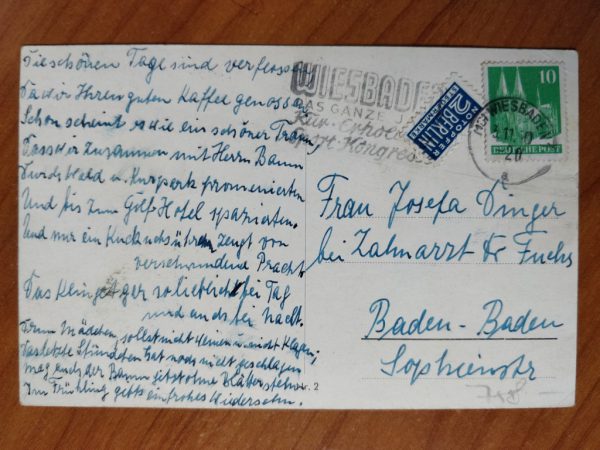 Die schönen Tage sind verflossen
Da wir Ihren guten Kaffee genossen
Schon scheint es wie ein schöner Traum
Dass wir zusammen mit Herrn Baum
Durchs Wald u. Kurpark promenierten
Und bis zum Golf-Hotel spazierten.
Und nur ein Kuckucksührchen zeugt von
verschwundene Pracht
Das klinget so lieblich bei Tag
und auch bei Nacht.
Drum Mädchen sollst nicht weinen u. nicht klagen,
Das letzte Stündchen hat noch nicht geschlagen
mag auch der Baum jetzt ohne Blätter stehn
Im Frühling gibts ein frohes Wiedersehn.
WIESBADEN
DAS GANZE J
Kur-Erhol
ort-Kongress
NOTOPFER
2 BERLIN
STEUERMARKE
10
DEUTSCHE POST
WIESBADEN
Frau Josefa Dinger
bei Zahnarzt Dr Fuchs
Baden-Baden
Sophienstr
r. 2